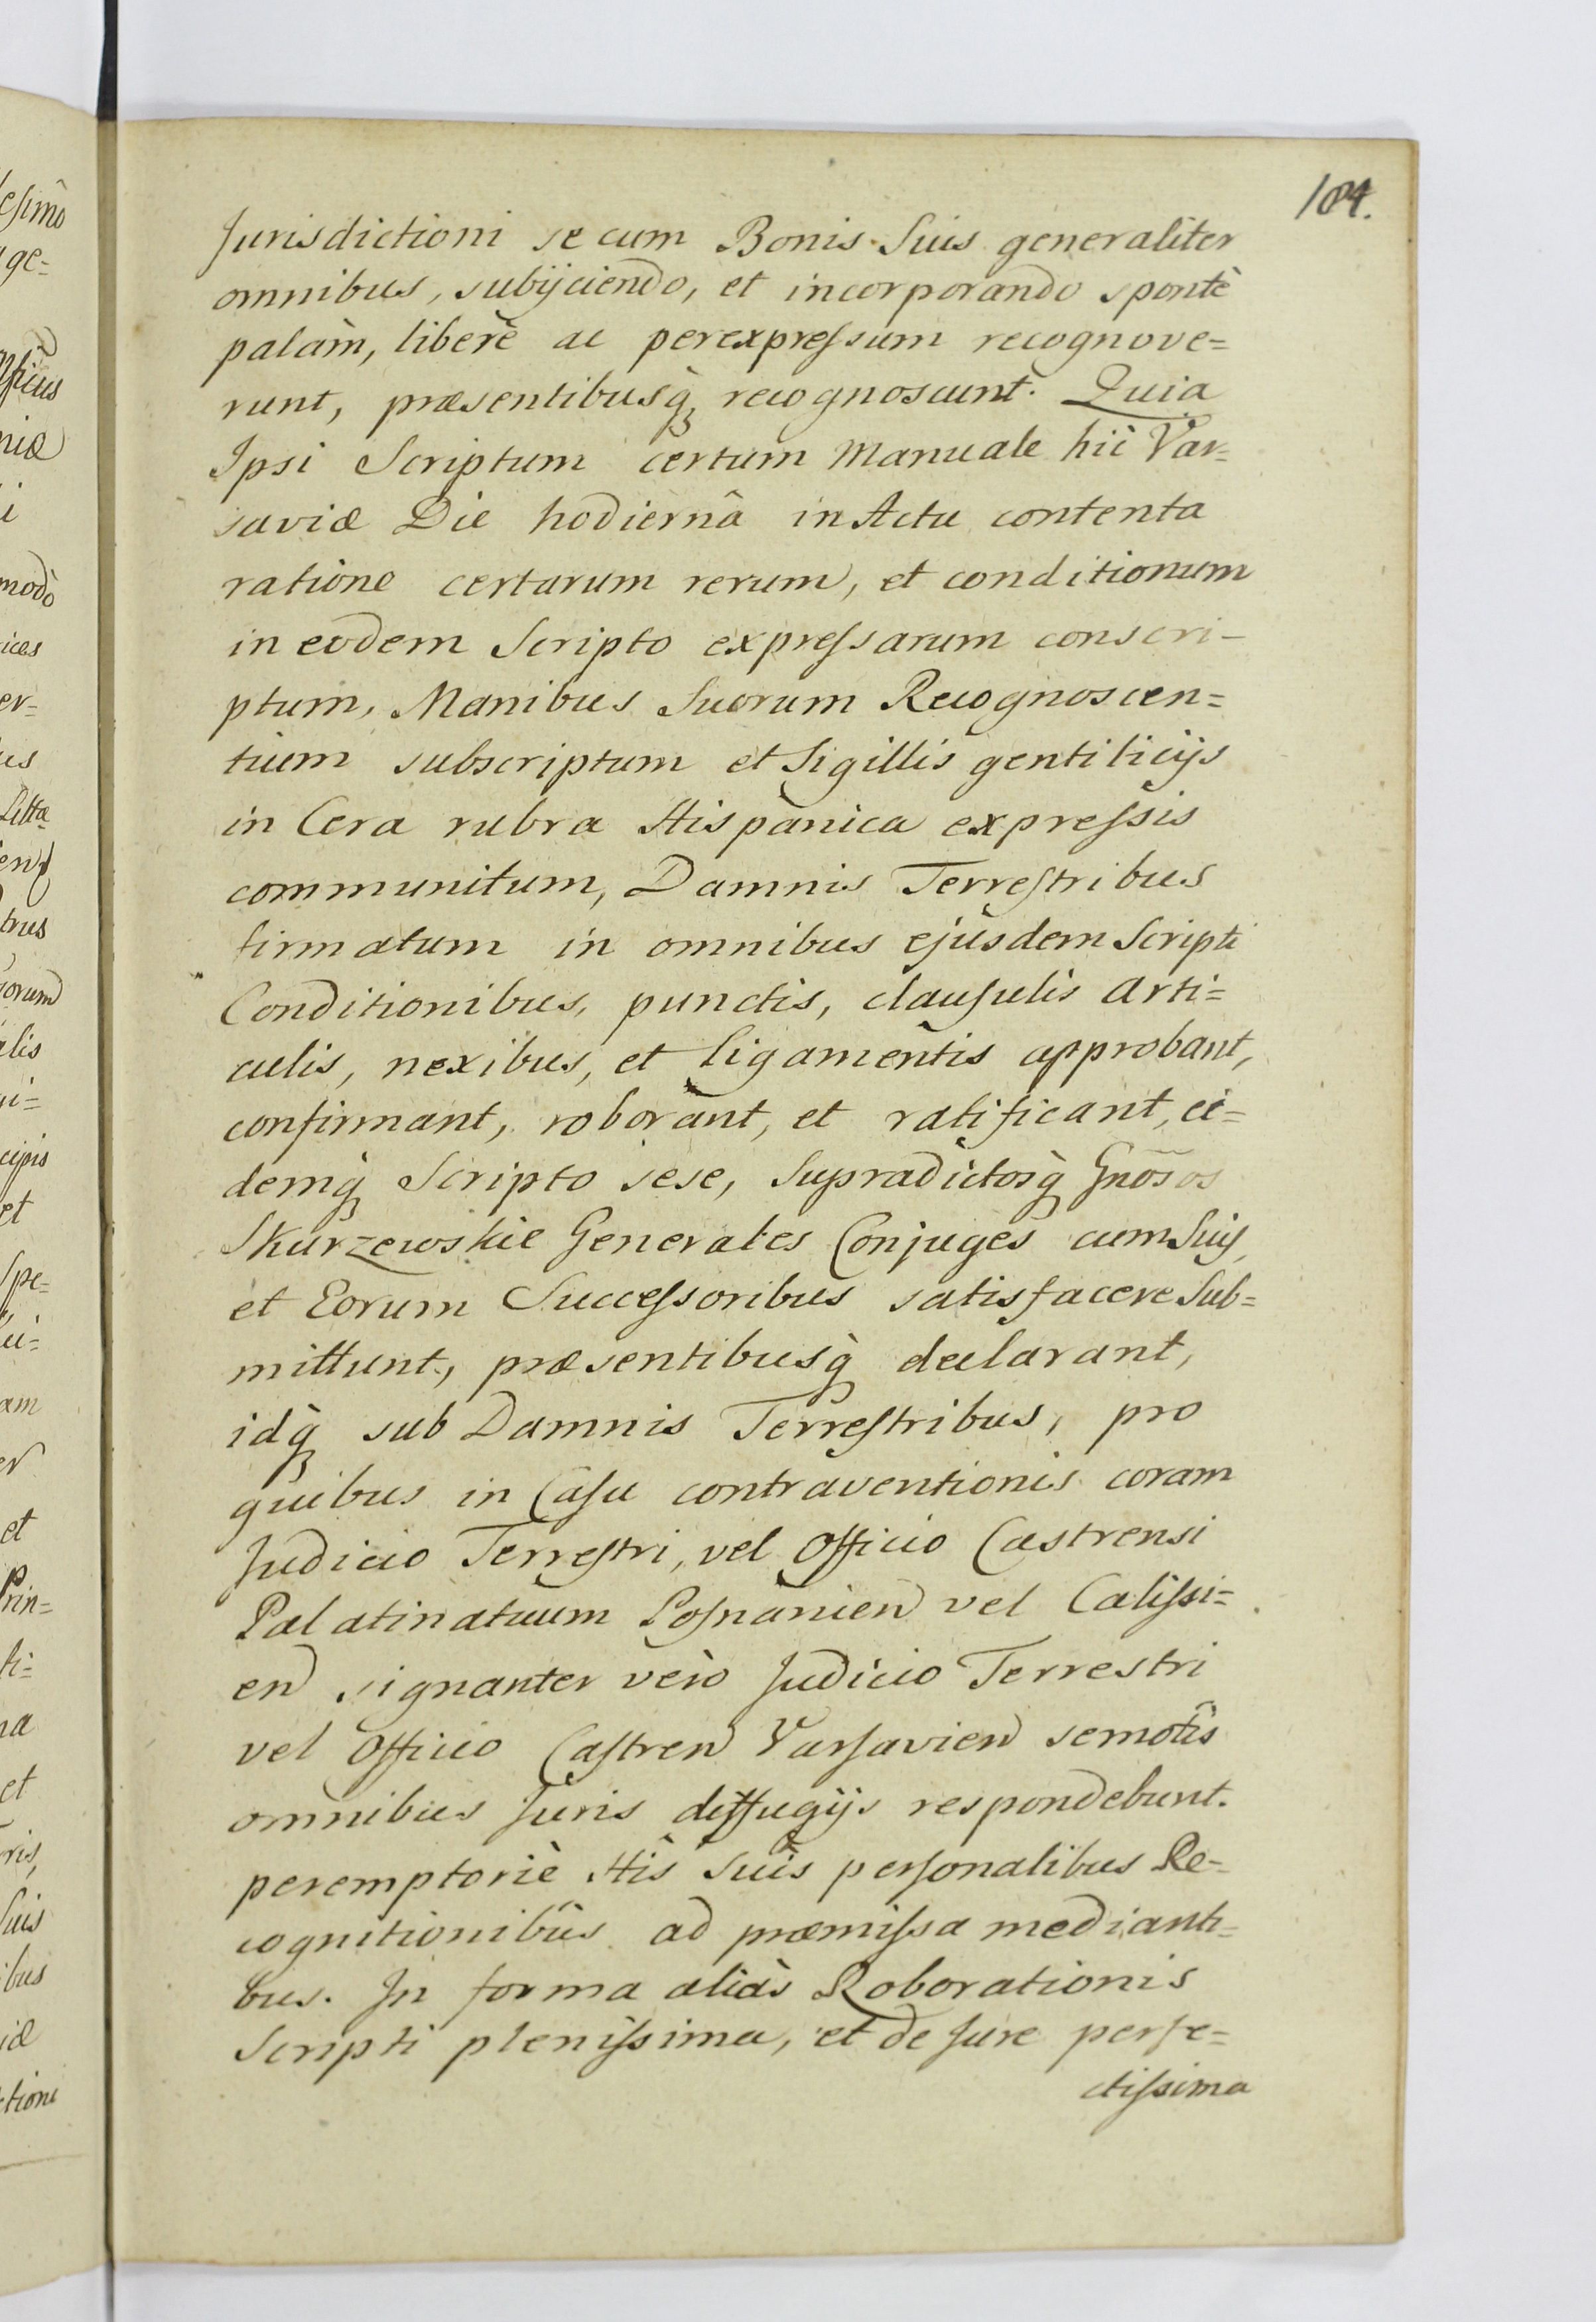 184.
Jurisdictioni se cum Bonis Suis generaliter
omnibus, subijciendo, et incorporando spontè
palàm, liberè ac perexpressum recognove=
runt, præsentibusq̀ recognoscunt. Quia
Ipsi Scriptum certum Manuale hìc Var=
saviæ Die hodiernâ in Actu contenta
ratione certarum rerum, et conditionum
in eodem Scripto expressarum conscri-
ptum, Manibus Suorum Recognoscen=
tium subscriptum et Sigillis gentilicijs
in Cera rubra Hispanica expressis
communitum, Damnis Terrestribus
firmatum in omnibus ejusdem Scripti
Conditionibus, punctis, clausulis Arti=
culis, nexibus, et ligamentis approbant,
confirmant, roborant, et ratificant, ei=
demq̀ Scripto sese, Supradictosq̀ Gnõsos
Skurzewskie Generales Conjuges cum Suis,
et Eorum Successoribus satisfacere Sub=
mittunt, præsentibusq̀ declarant,
idq̀ sub Damnis Terrestribus, pro
quibus in Casu contraventionis coram
Judicio Terrestri, vel Officio Castrensi
Palatinatuum Posnanien vel Calissi=
en signanter verò Judicio Terrestri
vel Officio Castren Varsavien semotis
omnibus Juris diffugijs respondebunt.
peremptoriè His Suis personalibus Re=
cognitionibus ad præmissa medianti=
bus. In forma aliàs Roborationis
Scripti plenissima, et de Jure perfe=
ctissima